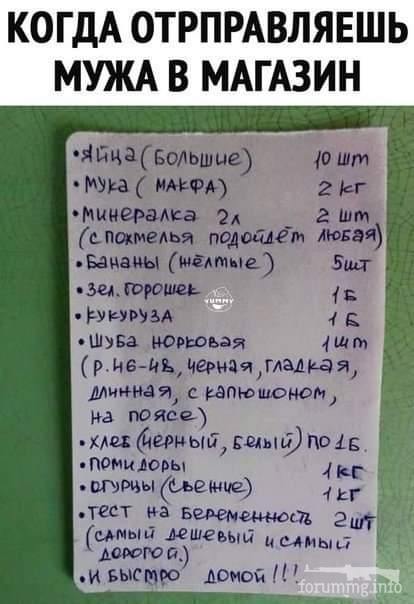 КОГДА ОТРПРАВЛЯЕШЬ
МУЖА В МАГАЗИН
•Яйца (Большие) 10 шт
•Мука (МАКФА) 2 кг
•Минералка 2л 2 шт
(с похмелья подойдёт любая)
•Бананы (жёлтые) 5шт
•Зел. горошек 1 Б
YUMMY
•Кукуруза 1 Б
•Шуба норковая 1 шт
(р. 46-48, чёрная, гладкая,
длинная, с капюшоном,
на поясе)
•хлеб (чёрный, белый) по 1Б.
•помидоры 1 кг
•огурцы (свежие) 1 кг
•тест на беременность 2 шт
(самый дешевый и самый
дорогой)
•и быстро домой!!!
forummg.info